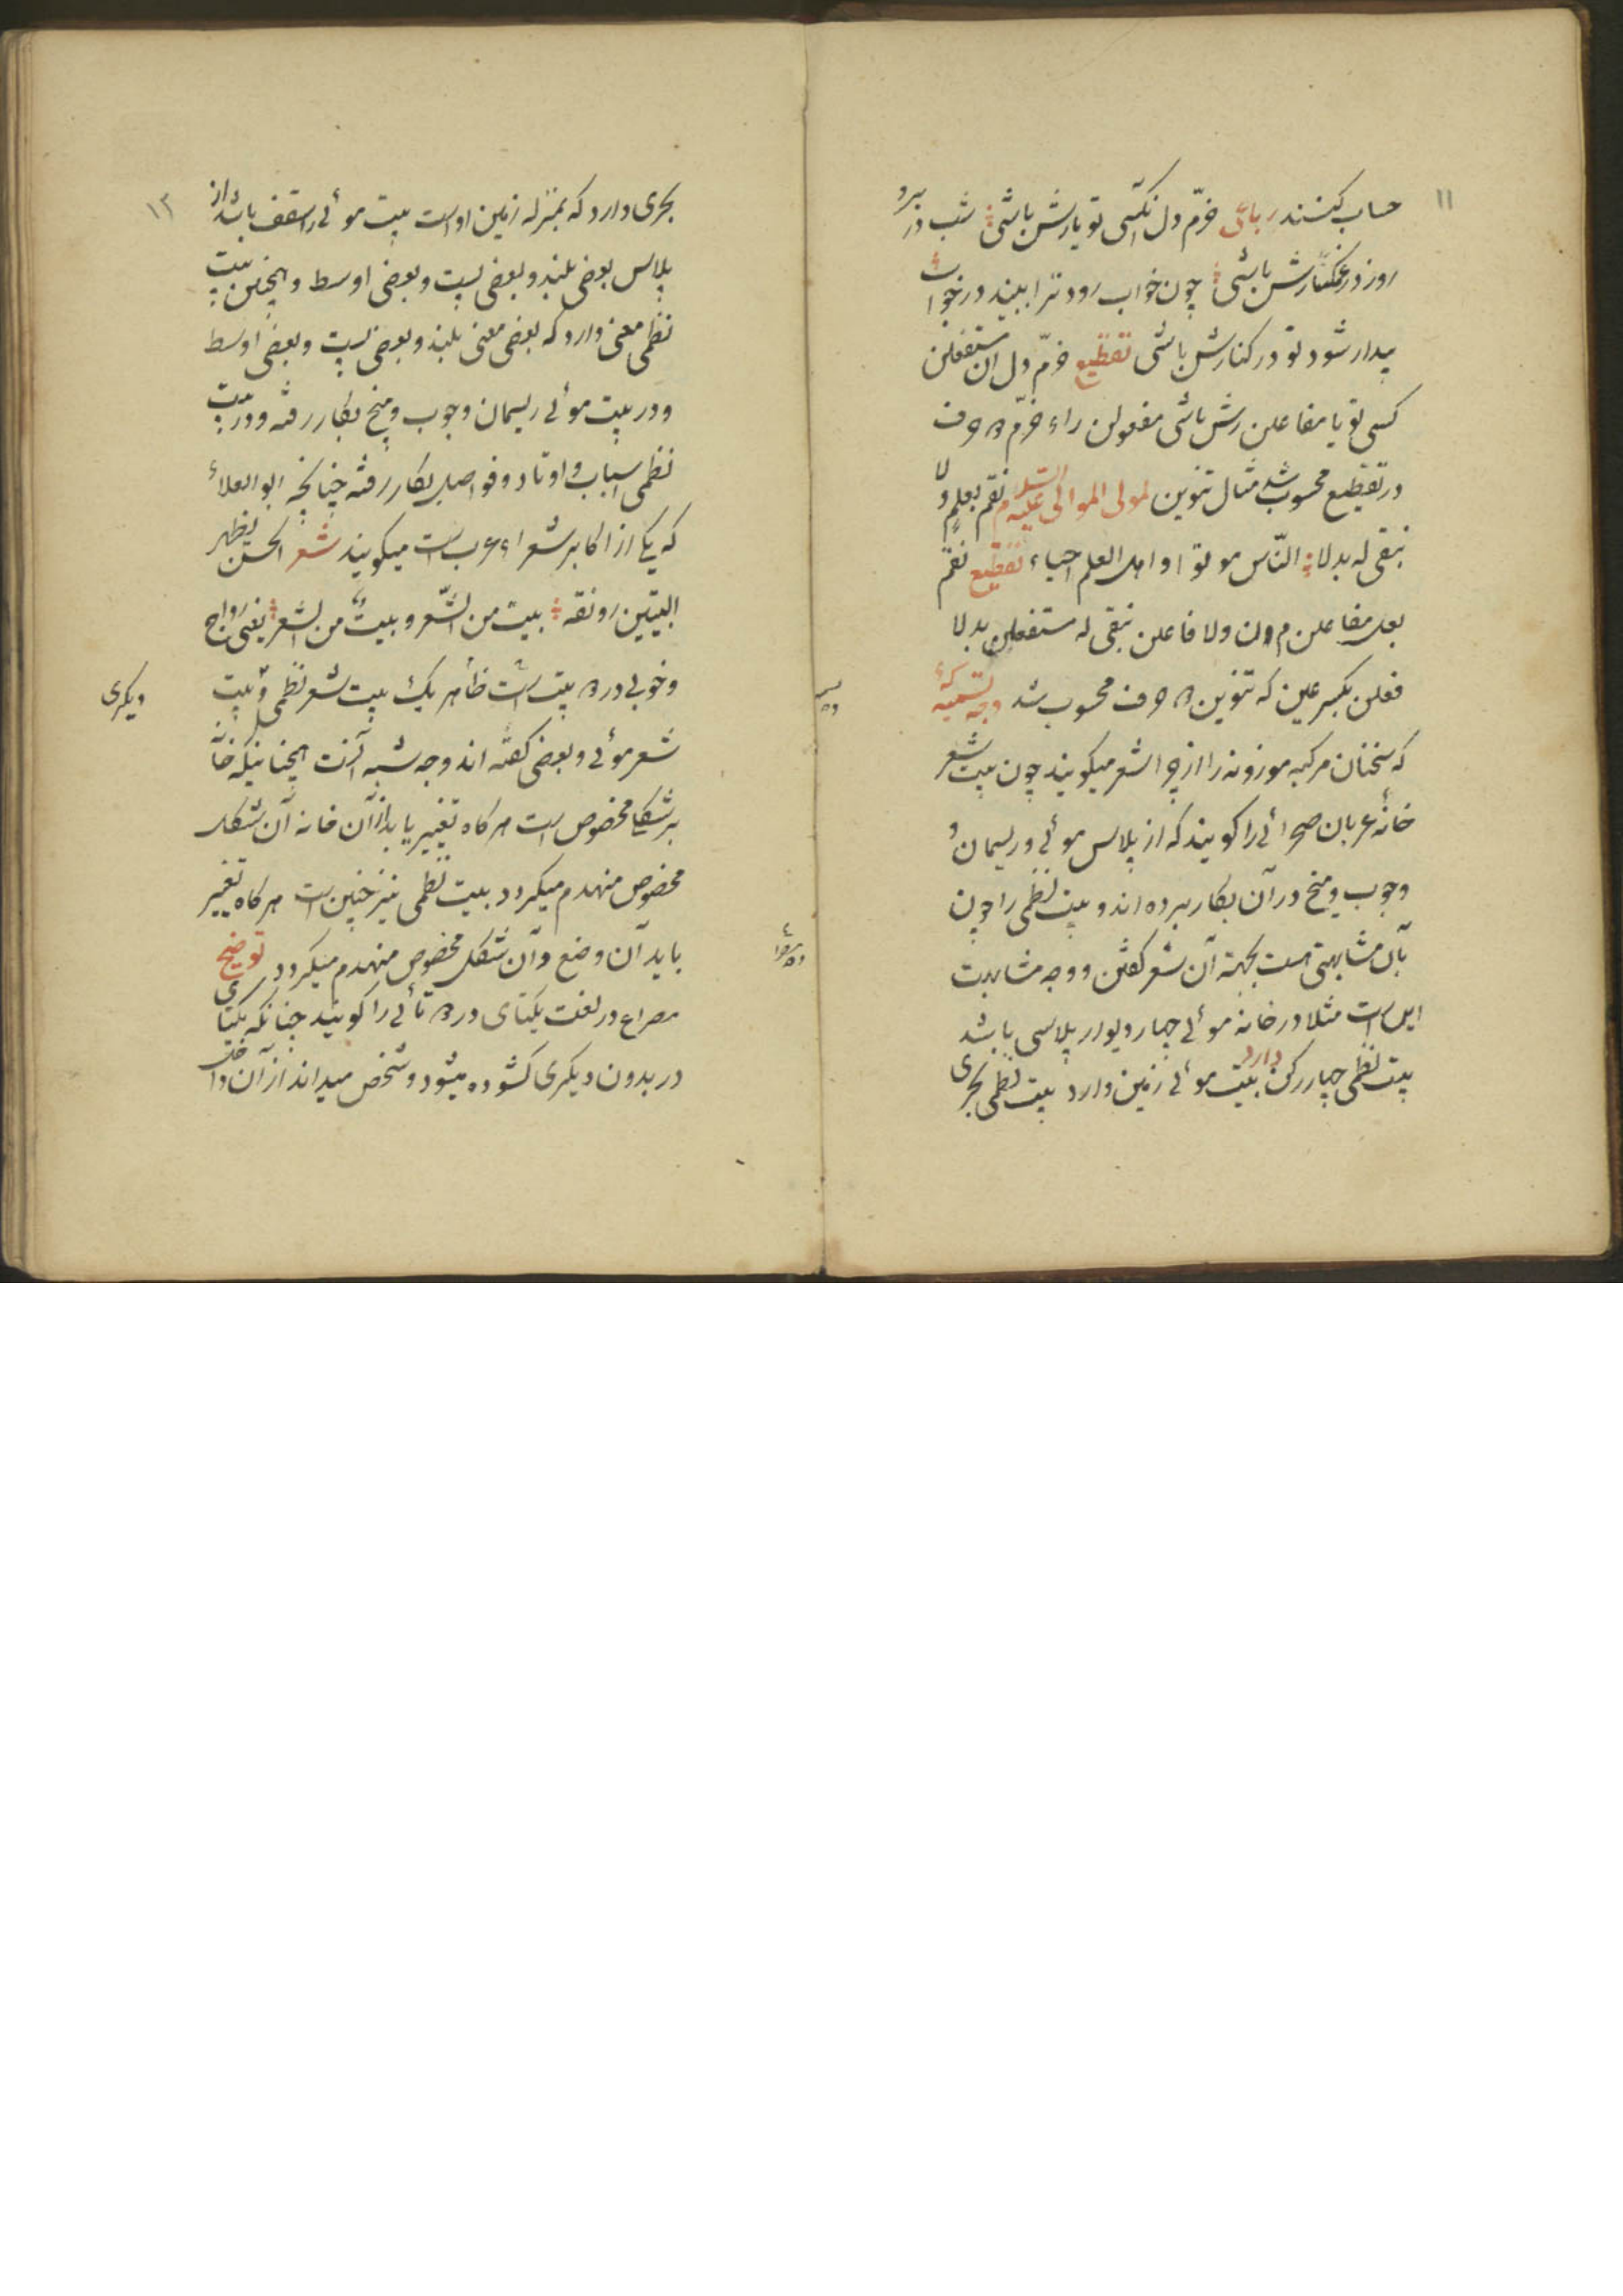 ۱۱
حساب کنند رباعی خرّم دل انکسی تو یارش باشی شب در برو
روز در غمکسارش باشی چون خواب رود ترا ببیند در خواب
بیدار شود تو در کنارش باشی تقطیع خرّم دل ان مستفعلن
کسی تو یا مفاعلن رش باشی مفعولن راء خرّم حرف
در تقطیع محسوب شد مثال تنوین لمولی الموالی علیه السلام نقم بعلمٍ ولا
نبقی له بدلا الناس موتی و اهل العلم احیاء تقطیع نقم
بعل مفاعلن من ولا فاعلن نبقی له مستفعلن بدلا
فعلن بکسر عین که تنوین حرف محسوب شد وجه تسمیه
که سخنان مرکبه موزونه را از چرا شعر میکویند چون بیت شعر
خانهٔ عربان صحرائی را کویند که از پلاس موئی و ریسمان و
و چوب و میخ در آن بکار برده اند و بیت نظمی را چون
بآن مشابهتی است بجهة آن شعر کفتن و وجه مشابهت
این است مثلا در خانه موئی چهار دیوار پلاسی باشد
بیت نظمی چهار رکن دارد بیت موئی زمین دارد بیت نظمی بحری
۱۲
بحری دارد که بمنزله زمین اوست بیت موئی را سقف باشد از
پلاس بعضی بلند و بعضی پست و بعضی اوسط و همچنین بیت
نظمی معنی دارد که بعضی معنی بلند و بعضی پست و بعضی اوسط
و در بیت موئی ریسمان و چوب و میخ بکار رفته و در بیت
نظمی اسباب و اوتاد و فواصل بکار رفته چنانچه ابو العلاء
که یکی از اکابر شعراء عرب است میکویند شعر الحسن یظهر
البیتین رونقه بیت من الشّعر و بیت من الشعر یعنی رواج
و خوبی در بیت است ظاهر یک بیت شعر نظمی و بیت
دیکری
شعر موئی و بعضی کفته اند وجه شبه آنست همچنانیکه خانه
بر شکلی مخصوص است هر کاه تغییر یابد از آن خانه آن شکل
مخصوص منهدم میکردد بیت نظمی نیز چنین است هر کاه تغییر
یابد آن وضع و آن شکل مخصوص منهدم میکردد توضیح
مصراع در لغت یکتای در تائی را کویند چنانکه یکتا
در بدون دیکری کشوده میشود و شخص میداند از آن